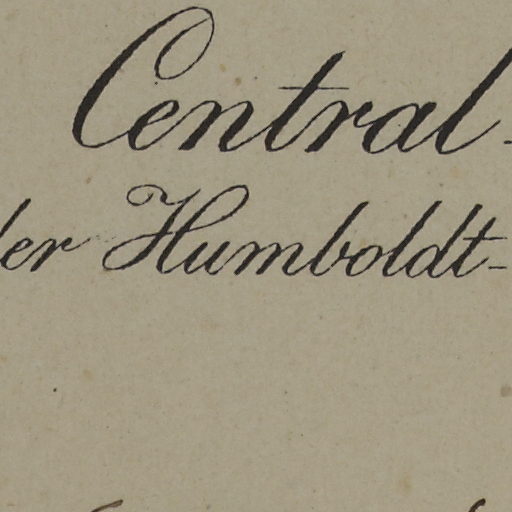 Central-
der Humboldt-